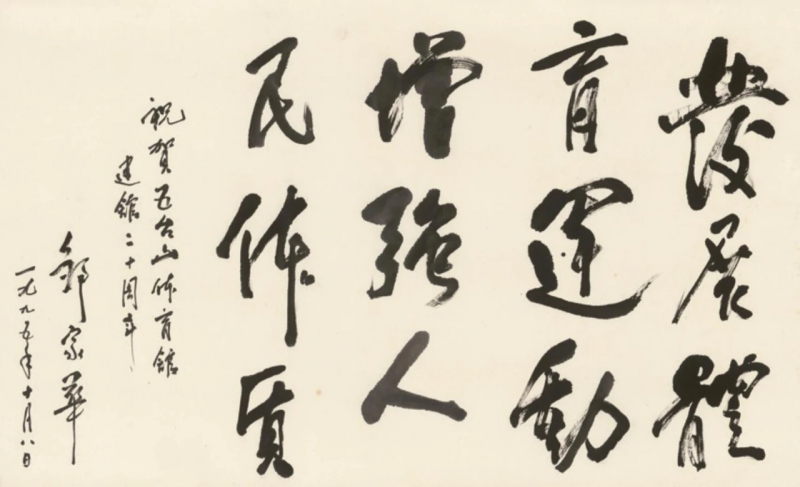 發展體
育運動
增強人
民体质
祝賀五台山体育館
建館二十周年
鄒家華
一九九五年十月八日